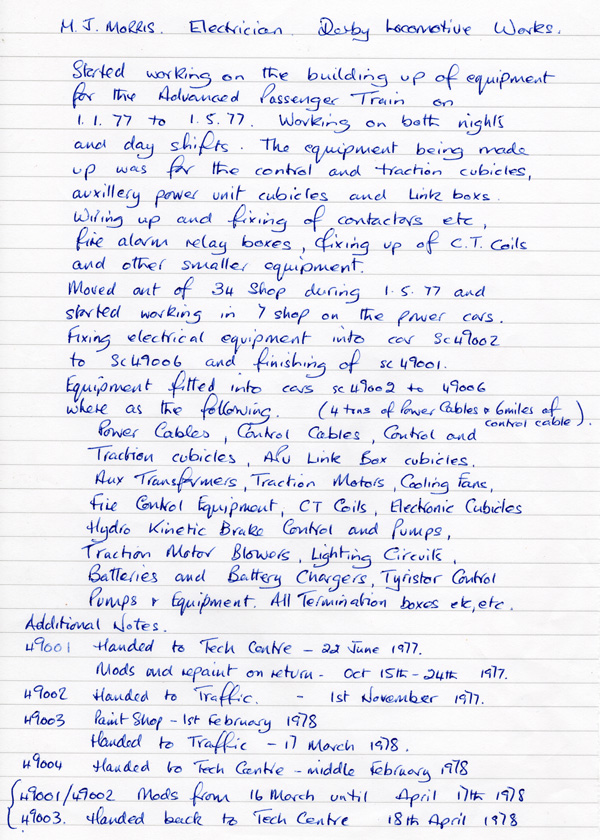 M. J. MORRIS. Electrician. Derby Locomotive Works.
Started working on the building up of equipment
for the Advanced Passenger Train on
1.1.77 to 1.5.77. Working on both nights
and day shifts. The equipment being made
up was for the control and traction cubicles,
auxillery power unit cubicles and Link boxs.
Wiring up and fixing of contactors etc,
fire alarm relay boxes, fixing up of C.T. Coils
and other smaller equipment.
Moved out of 34 Shop during 1.5.77 and
started working in 7 shop on the power cars.
Fixing electrical equipment into car Sc49002
to Sc49006 and finishing of sc 49001.
Equipment fitted into cars sc 49002 to 49006
where as the following. (4 tons of Power Cables & 6miles of
control cable).
Power Cables, Control Cables, Control and
Traction cubicles, APU Link Box cubicles.
Aux Transformers, Traction Motors, Cooling Fans,
Fire Control Equipment, CT Coils, Electronic Cubicles
Hydro Kinetic Brake Control and Pumps,
Traction Motor Blowers, Lighting Circuits,
Batteries and Battery Chargers, Tyristor Control
Pumps & Equipment. All Termination boxes etc, etc.
Additional Notes.
49001 Handed to Tech Centre - 22 June 1977.
Mods and repaint on return - Oct 15th - 24th 1977.
49002 Handed to Traffic. - 1st November 1977.
49003 Paint Shop - 1st February 1978
Handed to Traffic - 17 March 1978.
49004 Handed to Tech Centre - middle February 1978
49001/49002 Mods from 16 March until April 17th 1978
49003. Handed back to Tech Centre 18th April 1978